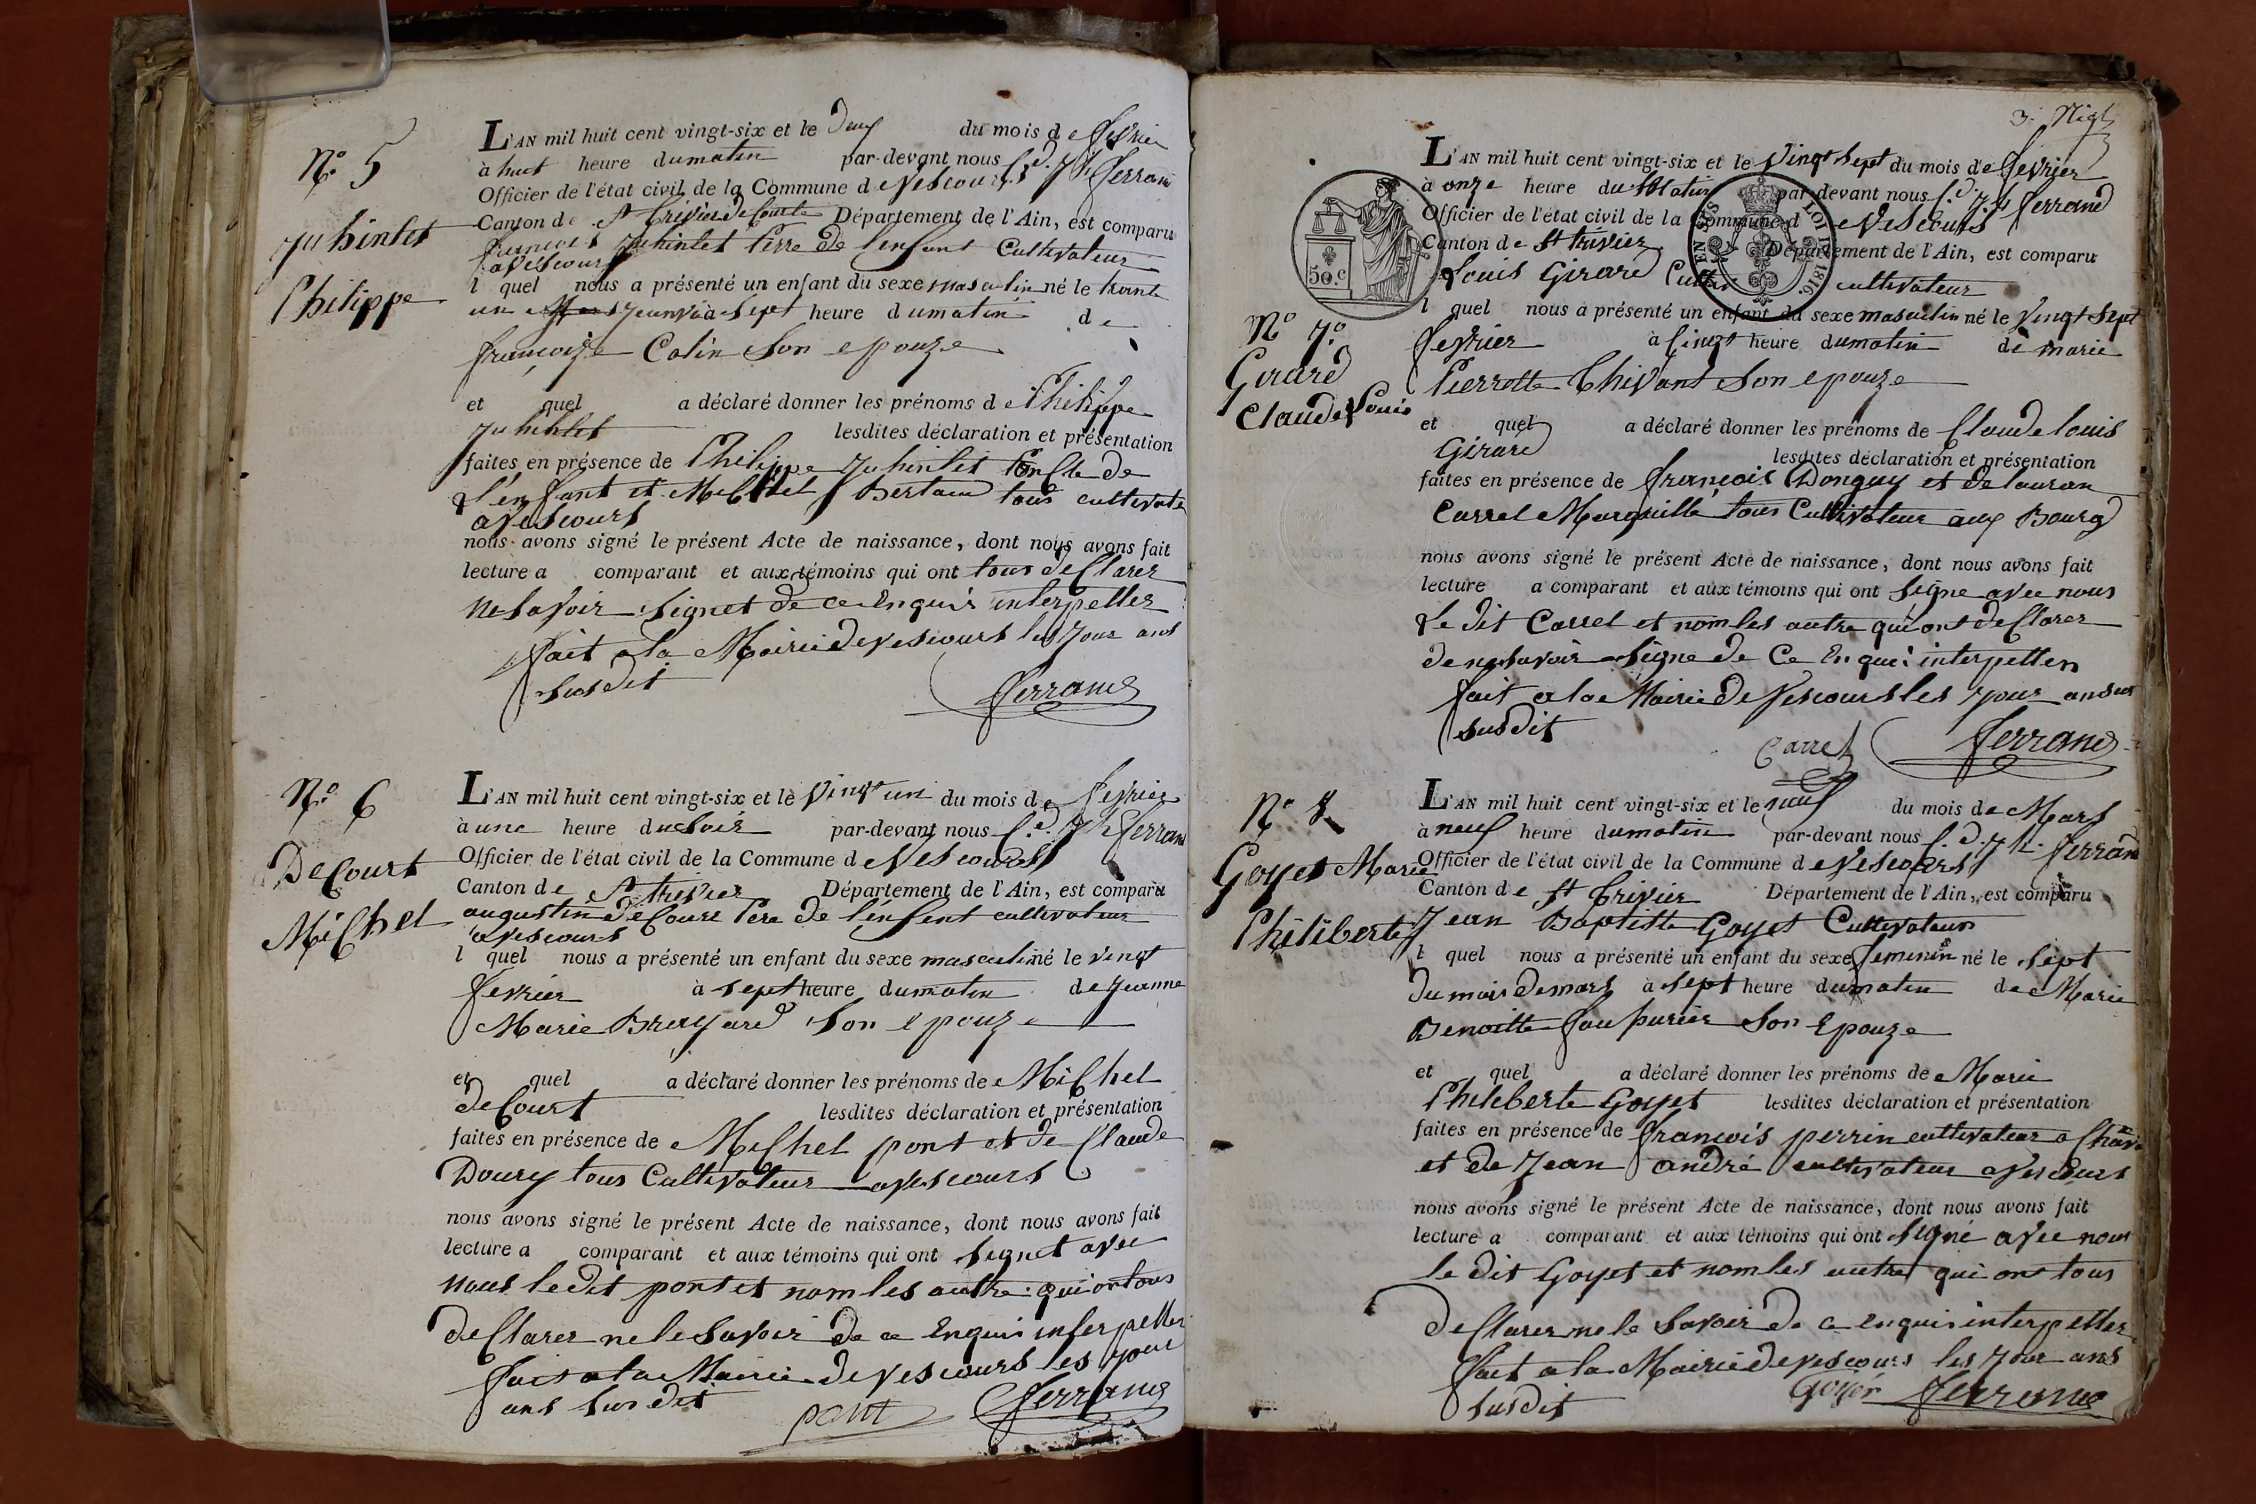 N.o 5
Juhinlet
Philippe
L'AN mil huit cent vingt-six et le deux du mois de fevrier
à huit heure du matin par-devant nous f.d. Jh ferrand
Officier de l'état civil de la Commune de Vescours
Canton de St Trivier de Courte Département de l'Ain, est comparu
francois Juhinlet Perre de l'enfant Cultivateur
a Vescours
l quel nous a présenté un enfant du sexe masculin né le trante
un Janvié à sept heure du matin de
françoize Colin son epouze
et quel a déclaré donner les prénoms de Philippe
Juhinlet lesdites déclaration et présentation
faites en présence de Philippe Juhinlet oncle de
L'enfant et Michel Bertaud tous cultivate
a Vescours
nous avons signé le présent Acte de naissance, dont nous avons fait
lecture a comparant et aux témoins qui ont tous declarer
ne savoir signet de ce Enquis interpeller
fait a la Mairie de vescours les Jour ans
susdit
ferrand
N.o 6
DeCourt
Michel
L'AN mil huit cent vingt-six et le vingt un du mois de fevrier
à une heure du soir par-devant nous f.d. Jh ferrand
Officier de l'état civil de la Commune de Vescours
Canton de St trivier Département de l'Ain, est comparu
augustin deCourt Pere de l'enfent cultivateur
a vescours
l quel nous a présenté un enfant du sexe masculin né le vingt
fevrier à sept heure du matin de Jeanne
Marie Bruyard son epouze
et quel a déclaré donner les prénoms de Michel
deCourt lesdites déclaration et présentation
faites en présence de Michel pont et de Claude
Doury tous Cultivateur a vescours
nous avons signé le présent Acte de naissance, dont nous avons fait
lecture a comparant et aux témoins qui ont signet avec
nous ledit pont et nom les autre qui ontous
declarer ne le savoir de ce Enquis interpeller
fait a la Mairie de vescours les jour
ans sus dit pont ferrand
3.
L'AN mil huit cent vingt-six et le vingt sept du mois de fevrier
à onze heure du Matin par-devant nous f.d. Jh ferrand
Officier de l'état civil de la Commune de Vescours
Canton de St trivier Département de l'Ain, est comparu
Louis Girard cultivateur
50.c
EN SUS
LOI DE 1816.
l quel nous a présenté un enfant du sexe masculin né le vingt sept
fevrier à cinq heure du matin de marie
Pierrotte Chivant son epouze
N.o 7.o
Girard
Claude Louis
et quel a déclaré donner les prénoms de Claude louis
Girard lesdites déclaration et présentation
faites en présence de françois Donguy et de lauran
Carrel Marguille tous Cultivateur aux Bourg
nous avons signé le présent Acte de naissance, dont nous avons fait
lecture a comparant et aux témoins qui ont signe avec nous
Le dit Carrel et nom les autre qui ont declarer
de ne savoir signe de ce Enquei interpeller
fait a la Mairie de Vescours les jour ans
susdit
Carrel ferrand
N.o 8
Goyet Marie
Philiberte
L'AN mil huit cent vingt-six et le neuf du mois de Mars
à neuf heure du matin par-devant nous f.d. Jh. ferrand
Officier de l'état civil de la Commune de Vescours
Canton de St Trivier Département de l'Ain, est comparu
Jean Baptiste Goyet Cultivateur
l quel nous a présenté un enfant du sexe femenin né le sept
du mois de mars à sept heure du matin de Marie
Benoitte son Epouze
et quel a déclaré donner les prénoms de Marie
Phileberte Goyet lesdites déclaration et présentation
faites en présence de françois perrin cultivateur a
et de Jean andré cultivateur a Vescours
nous avons signé le présent Acte de naissance, dont nous avons fait
lecture a comparant et aux témoins qui ont signé avec nous
le dit Goyet et nom les autre qui ont tous
declarer ne le savoir de ce enquis interpeller
fait a la Mairie de vescours les Jour ans
susdit Goyet ferrand